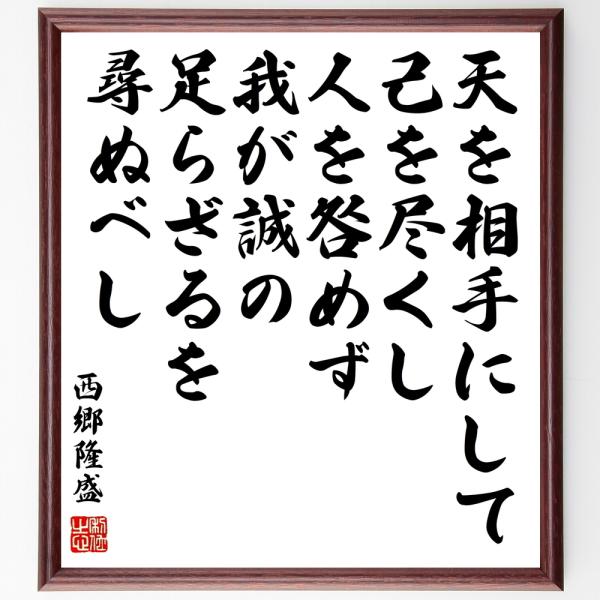 天を相手にして
己を尽くし
人を咎めず
我が誠の
足らざるを
尋ぬべし
西郷隆盛